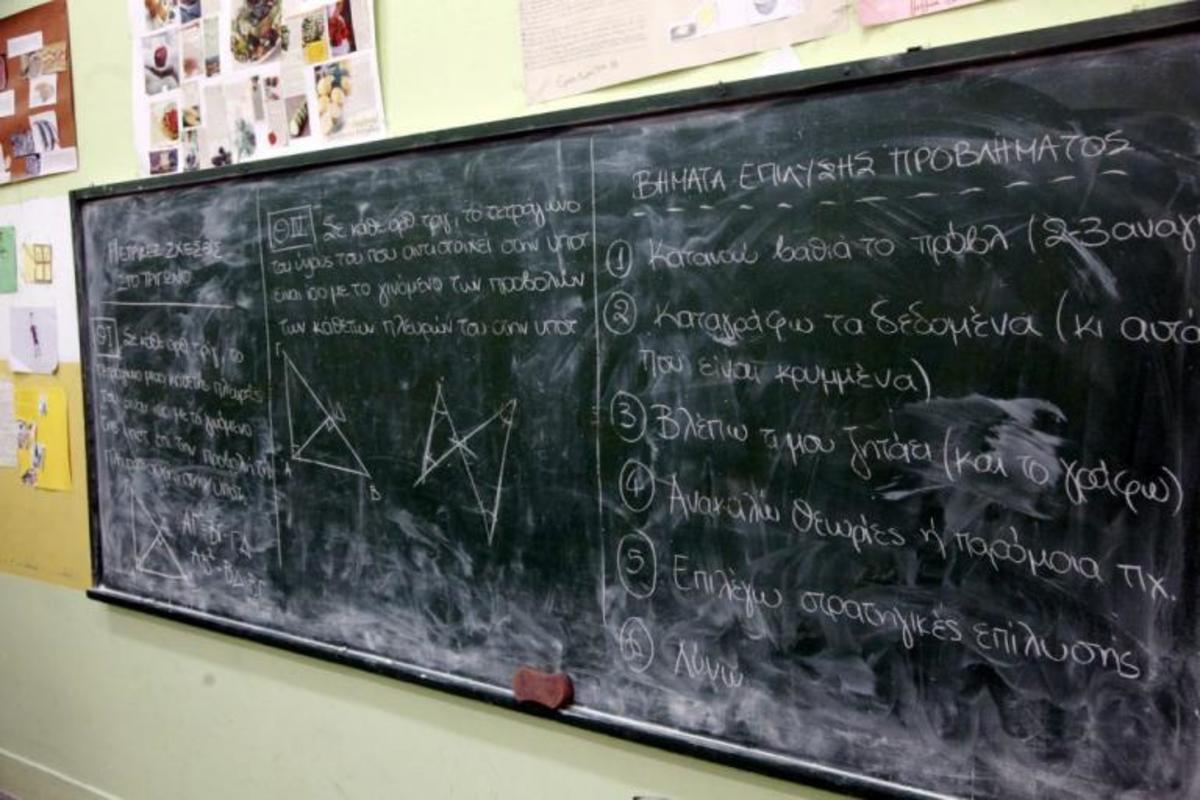 ΜΕΤΡΙΚΕΣ ΣΧΕΣΕΙΣ
ΣΤΟ ΤΡΙΓΩΝΟ
ΘΙ Σε κάθε ορθ τριγ, το
τετράγωνο μιας κάθετης πλευράς
του είναι ίσο με το γινόμενο
της υποτ επί την προβολή της
στην υποτ.
ΑΓ² = ΒΓ·ΓΔ
ΑΒ² = ΒΔ·ΒΓ
ΘΙΙ Σε κάθε ορθ τριγ, το τετράγωνο
του ύψους του που αντιστοιχεί στην υποτ
είναι ίσο με το γινόμενο των προβολών
των κάθετων πλευρών του στην υποτ
Γ
Δ
Α
Β
ΒΗΜΑΤΑ ΕΠΙΛΥΣΗΣ ΠΡΟΒΛΗΜΑΤΟΣ
① Κατανοώ βαθιά το πρόβλ (2-3 αναγ
② Καταγράφω τα δεδομένα (κι αυτά
που είναι κρυμμένα)
③ Βλέπω τι μου ζητάει (και το γράφω)
④ Ανακαλώ θεωρίες ή παρόμοια πχ.
⑤ Επιλέγω στρατηγικές επίλυσης
⑥ Λύνω